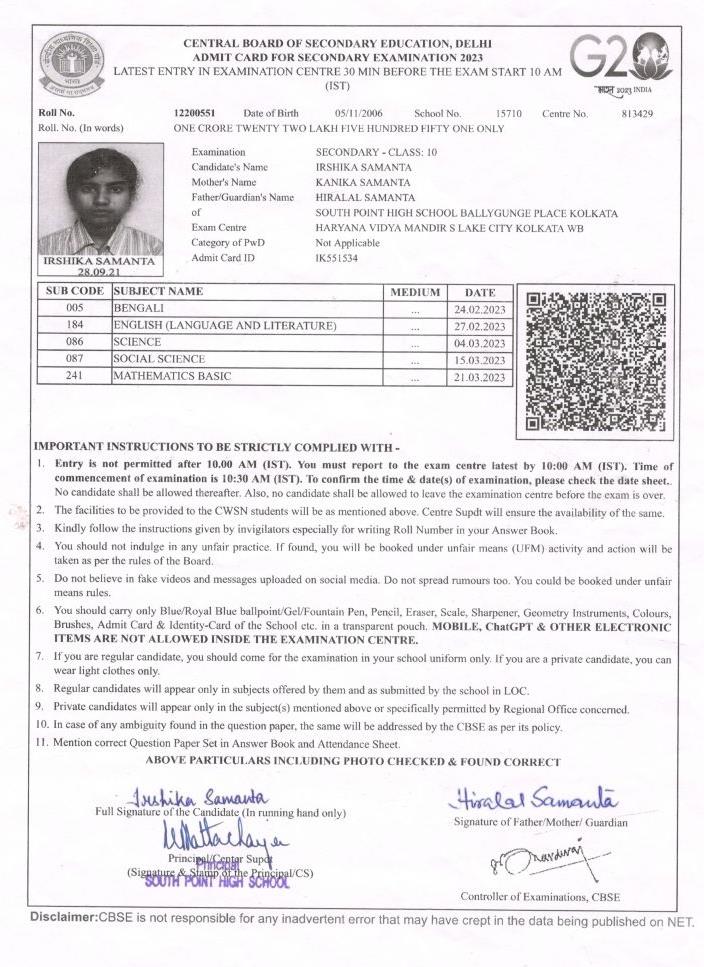 CENTRAL BOARD OF SECONDARY EDUCATION, DELHI
ADMIT CARD FOR SECONDARY EXAMINATION 2023
LATEST ENTRY IN EXAMINATION CENTRE 30 MIN BEFORE THE EXAM START 10 AM
(IST)
G20
भारत 2023 INDIA
भारत
Roll No. 12200551 Date of Birth 05/11/2006 School No. 15710 Centre No. 813429
Roll. No. (In words) ONE CRORE TWENTY TWO LAKH FIVE HUNDRED FIFTY ONE ONLY
Examination SECONDARY - CLASS: 10
Candidate's Name IRSHIKA SAMANTA
Mother's Name KANIKA SAMANTA
Father/Guardian's Name HIRALAL SAMANTA
of SOUTH POINT HIGH SCHOOL BALLYGUNGE PLACE KOLKATA
Exam Centre HARYANA VIDYA MANDIR S LAKE CITY KOLKATA WB
Category of PwD Not Applicable
Admit Card ID IK551534
IRSHIKA SAMANTA
28.09.21
SUB CODE SUBJECT NAME MEDIUM DATE
005 BENGALI ... 24.02.2023
184 ENGLISH (LANGUAGE AND LITERATURE) ... 27.02.2023
086 SCIENCE ... 04.03.2023
087 SOCIAL SCIENCE ... 15.03.2023
241 MATHEMATICS BASIC ... 21.03.2023
IMPORTANT INSTRUCTIONS TO BE STRICTLY COMPLIED WITH -
1. Entry is not permitted after 10.00 AM (IST). You must report to the exam centre latest by 10:00 AM (IST). Time of
commencement of examination is 10:30 AM (IST). To confirm the time & date(s) of examination, please check the date sheet..
No candidate shall be allowed thereafter. Also, no candidate shall be allowed to leave the examination centre before the exam is over.
2. The facilities to be provided to the CWSN students will be as mentioned above. Centre Supdt will ensure the availability of the same.
3. Kindly follow the instructions given by invigilators especially for writing Roll Number in your Answer Book.
4. You should not indulge in any unfair practice. If found, you will be booked under unfair means (UFM) activity and action will be
taken as per the rules of the Board.
5. Do not believe in fake videos and messages uploaded on social media. Do not spread rumours too. You could be booked under unfair
means rules.
6. You should carry only Blue/Royal Blue ballpoint/Gel/Fountain Pen, Pencil, Eraser, Scale, Sharpener, Geometry Instruments, Colours,
Brushes, Admit Card & Identity-Card of the School etc. in a transparent pouch. MOBILE, ChatGPT & OTHER ELECTRONIC
ITEMS ARE NOT ALLOWED INSIDE THE EXAMINATION CENTRE.
7. If you are regular candidate, you should come for the examination in your school uniform only. If you are a private candidate, you can
wear light clothes only.
8. Regular candidates will appear only in subjects offered by them and as submitted by the school in LOC.
9. Private candidates will appear only in the subject(s) mentioned above or specifically permitted by Regional Office concerned.
10. In case of any ambiguity found in the question paper, the same will be addressed by the CBSE as per its policy.
11. Mention correct Question Paper Set in Answer Book and Attendance Sheet.
ABOVE PARTICULARS INCLUDING PHOTO CHECKED & FOUND CORRECT
Irshika Samanta
Full Signature of the Candidate (In running hand only)
Hiralal Samanta
Signature of Father/Mother/ Guardian
Principal/Center Supdt
Principal
(Signature & Stamp of the Principal/CS)
SOUTH POINT HIGH SCHOOL
Controller of Examinations, CBSE
Disclaimer:CBSE is not responsible for any inadvertent error that may have crept in the data being published on NET.